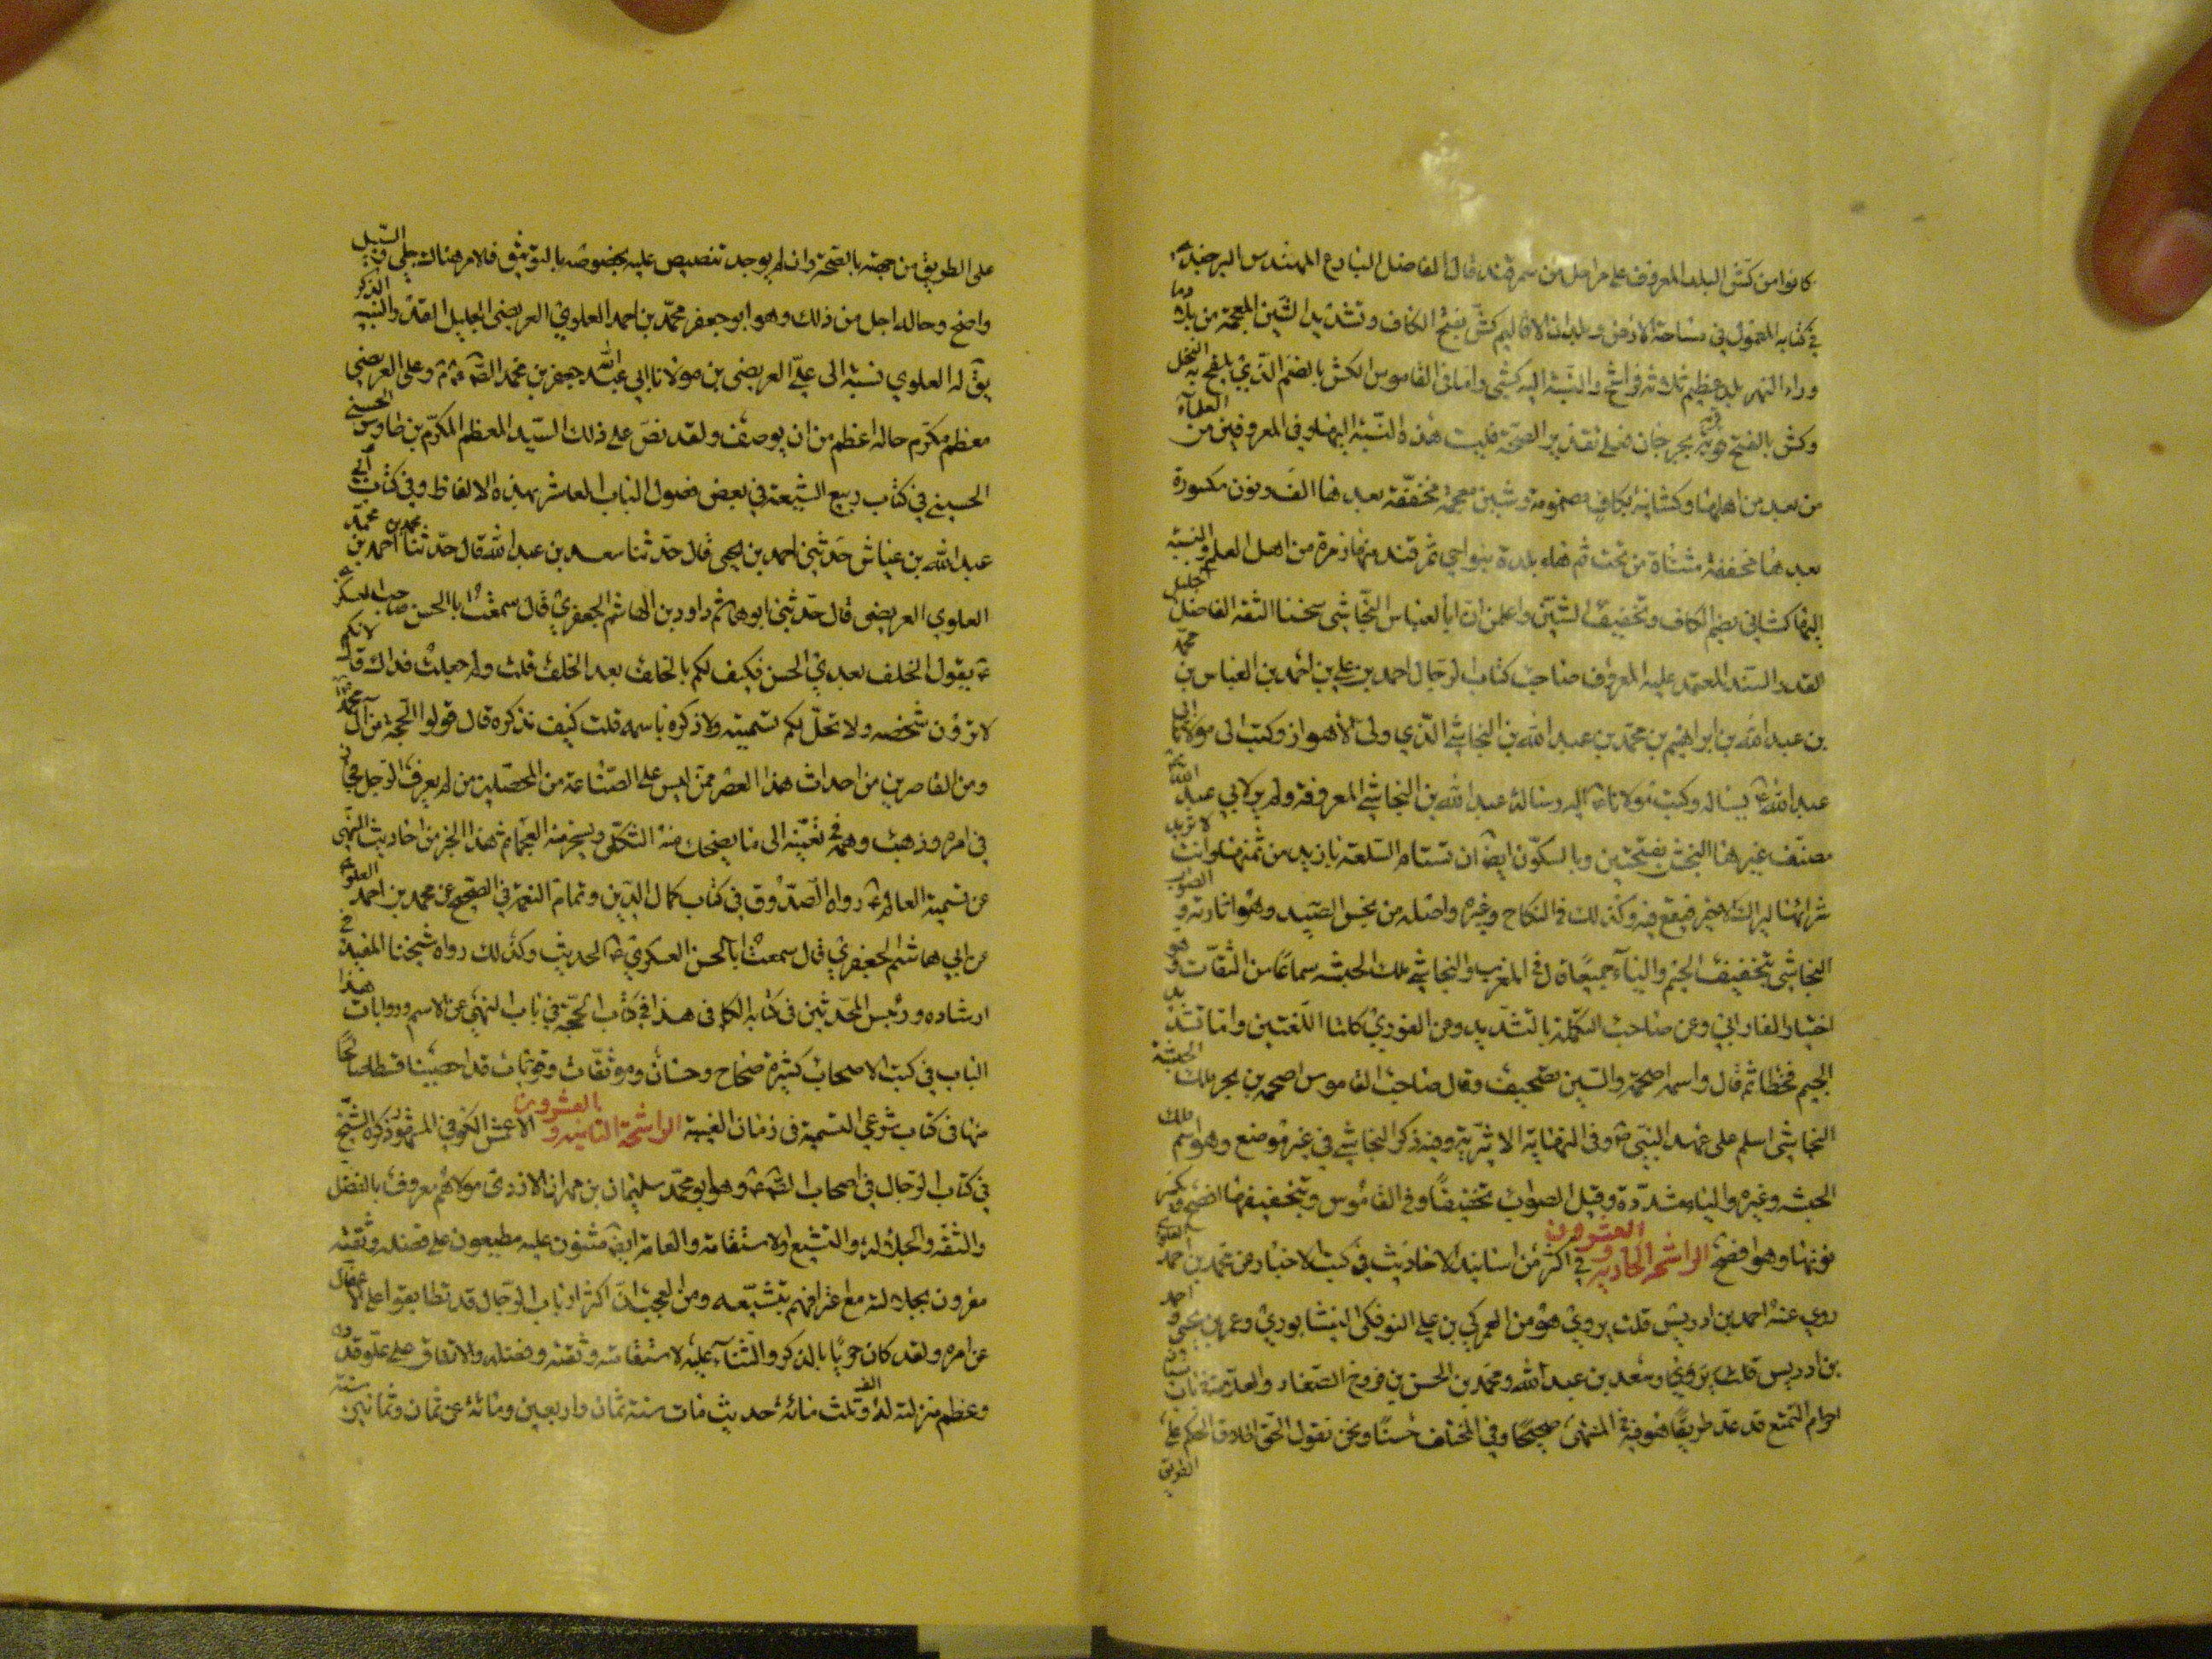 كانوا من كش البلد المعروف على مراحل من سمرقند قال الفاضل البارع المهندس البرجندي
في كتابه المعمول في مساحة الارض وبلدان الاقاليم كش بفتح الكاف وتشديد الشين المعجمة من بلاد ما
وراء النهر بلد عظيم ثلاثة فراسخ والنسبة اليه كشي واما في القاموس الكش بالضم الذي يلقح به النخل
وكش بالفتح قرية بجرجان فعلى تقدير الصحة فليست هذه النسبة اليها وفي المعروفين من العلماء
من يعد من اهلها وكشانية بكاف مضمومة وشين معجمة مخففة بعدها الف ونون مكسورة
بعدها مخففة مثناة من تحت ثم هاء بلدة بنواحي سمرقند منها زمرة من اهل العلم والنسبة
اليها كشاني بضم الكاف وتخفيف الشين واعلمن ان ابا العباس النجاشي شيخنا الثقة الفاضل الجليل
القدر السند المعتمد عليه المعروف صاحب كتاب الرجال احمد بن علي بن احمد بن العباس بن محمد
بن عبد الله بن ابراهيم بن محمد بن عبد الله بن النجاشي الذي ولى الاهواز وكتب الى مولانا ابي
عبد الله ع يسأله وكتب مولانا ع اليه رسالة عبد الله بن النجاشي المعروفة ولم ير لابي عبد الله ع
مصنف غيرها النجش بفتحتين وبالسكون ايضا ان تستام السلعة بازيد من ثمنها وانت لا تريد
شرائها ليراك الاخر فيقع فيه وكذلك في النكاح وغيره واصله من نجش الصيد وهو اثارته و الصواب
النجاشي بتخفيف الجيم والياء جميعا قال في المغرب والنجاشي ملك الحبشة سماعا من الثقات وهو
اختيار الفارابي وعن صاحب التكملة بالتشديد وعن الغوري كلتا اللغتين واما تشديد
الجيم فخطأ ثم قال واسمه اصحمة والسين تصحيف وقال صاحب القاموس اصحمة بن بحر ملك الحبشة
النجاشي اسلم على عهد النبي ص وفي النهاية الاثيرية وفيه ذكر النجاشي في غير موضع وهو اسم ملك
الحبشة وغيره والياء مشددة وقيل الصواب تخفيفا وفي القاموس وبتخفيفها افصح وتكسر
نونها وهو افصح الراشحة الحادية والعشرون في اكثر من اسانيد الاحاديث في كتب الاخبار عن محمد بن احمد العلوي
روي عنه احمد بن ادريس قلت يروي هو من العمركي بن علي البوفكي النيشابوري وعمر بن يحيى و احمد
بن ادريس قلت يروي سعد بن عبد الله ومحمد بن الحسن بن فروخ الصفار والعلامة في باب سياق
احرام التمتع قد عد طريقا هو فيه في المنتهى صحيحا وفي المختلف حسنا ونحن نقول الحق اطلاق الحكم على
الطريق
على الطريق من جهته بالصحة وان لم يوجد تنصيص عليه بخصوصه بالتوثيق فالامر هناك جلي و السبيل
واضح وحاله اجل من ذلك وهو ابو جعفر محمد بن احمد العلوي العريضي الجليل القدر والنبيه الذكر
يق له العلوي نسبة الى علي العريضي بن مولانا ابي عبد الله جعفر بن محمد الصادق ع وعلي العريضي
معظم مكرم حاله اعظم من ان يوصف ولقد نص على ذلك السيد المعظم المكرم بن طاوس الحسني
الحسيني في كتاب ربيع الشيعة في بعض فصول الباب العاشر بهذه الالفاظ وفي كتاب ابي
عبد الله بن عياش حدثني احمد بن يحيى قال حدثنا سعد بن عبد الله قال حدثنا محمد بن احمد بن محمد
العلوي العريضي قال حدثني ابو هاشم داود بن القاسم الجعفري قال سمعت ابا الحسن صاحب العسكر
ع يقول الخلف بعدي الحسن فكيف لكم بالخلف بعد الخلف قلت ولم جعلت فداك قال لانكم
لا ترون شخصه ولا تحل لكم تسميته ولا ذكره باسمه قلت كيف نذكره قال قولوا الحجة من آل محمد
ومن القاصرين من احداث هذا العصر ممن ليس على الصناعة من المحصلين من لم يعرف الرجل
في امره وذهب وهمه في تعيينه الى ما يضحك منه الثكلى ويسخر منه العجماء ثم هذا الخبر من احاديث النهي
عن تسمية العالم ع رواه الصدوق في كتاب كمال الدين وتمام النعمة في الصحيح عن محمد بن احمد العلوي
عن ابي هاشم الجعفري قال سمعت ابا الحسن العسكري ع الحديث وكذلك رواه شيخنا المفيد في
ارشاده ورئيس المحدثين في كتابه الكافي هذا في كتاب الحجة في باب النهي عن الاسم وروايات هذا
الباب في كتب الاصحاب كثيرة صحاح وحسان وموثقات وقويات قد احصينا قسطا صالحا
منها في كتاب شرعة التسمية في زمان الغيبة الراشحة الثانية و العشرون الاعمش الكوفي المشهور ذكره الشيخ
في كتاب الرجال في اصحاب الصادق ع وهو ابو محمد سليمان بن مهران الازدي مولاهم معروف بالفضل
والثقة والجلالة والتشيع والاستقامة والعامة ايضا مثنون عليه مطبقون على فضله وثقته
مقرون بجلالته مع اعترافهم بتشيعه ومن العجب ان اكثر ارباب الرجال قد تطابقوا على الاغفال
عن امره ولقد كان حريا بالذكر والثناء عليه لاستقامته وثقته وفضله والاتفاق على علو قدره
وعظم منزلته له الف وثلث مائة حديث مات سنة ثمان واربعين ومائة عن ثمان وثمانين سنة